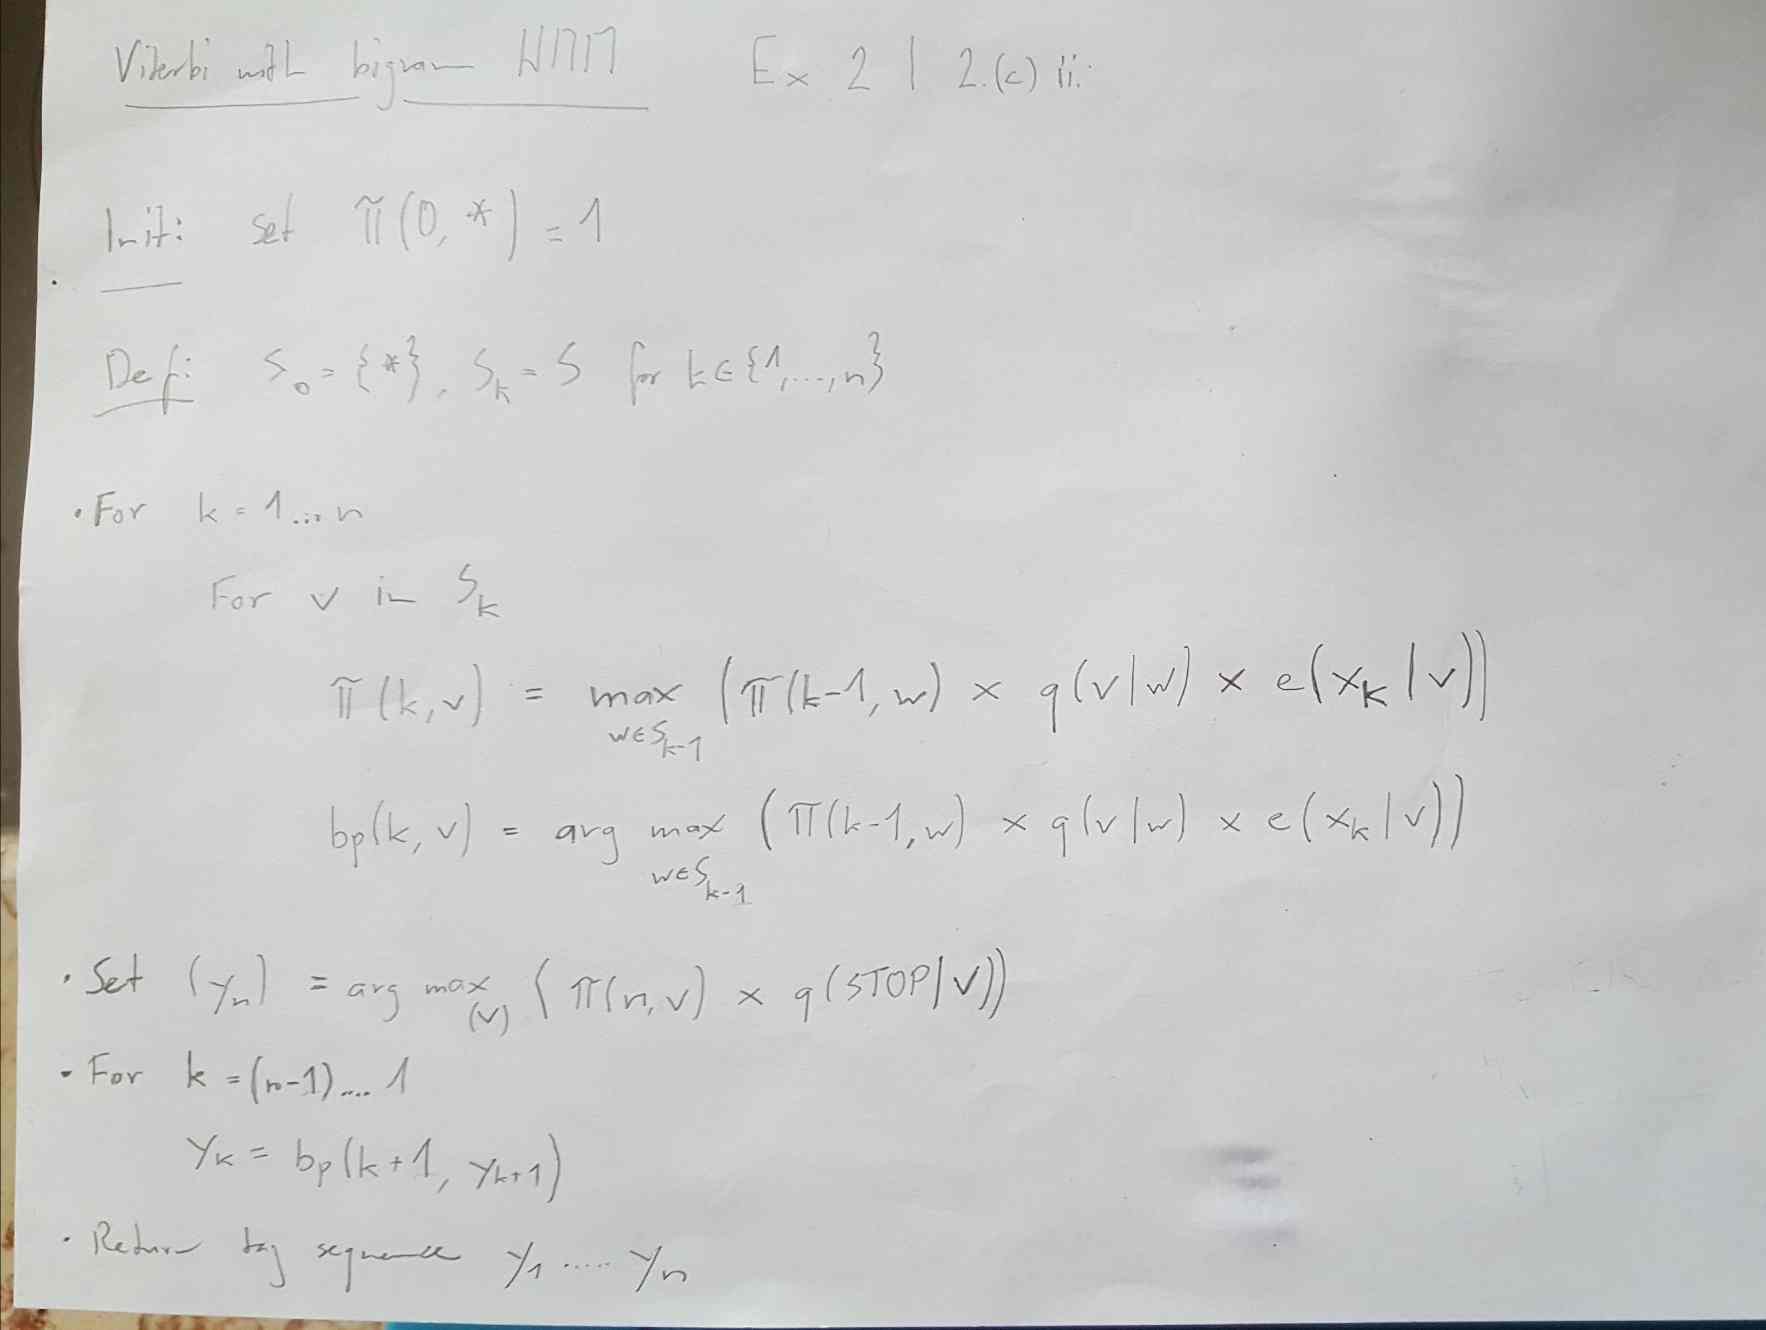 Viterbi with bigram HMM Ex 2 | 2.(c) ii.
Init: set π(0, *) = 1
Def: S₀ = {*}, Sₖ = S for k ∈ {1,...,n}
· For k = 1...n
For v in Sₖ
π(k, v) = max_{w∈S_{k-1}} (π(k-1, w) × q(v|w) × e(xₖ|v))
bp(k, v) = arg max_{w∈S_{k-1}} (π(k-1, w) × q(v|w) × e(xₖ|v))
· Set (yₙ) = arg max_{(v)} (π(n, v) × q(STOP|v))
· For k = (n-1).... 1
yₖ = bp(k+1, y_{k+1})
· Return tag sequence y₁ ..... yₙ